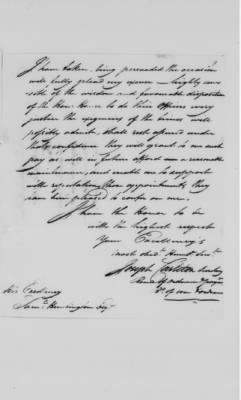 I have taken, being persuaded the occasion
will fully plead my excuse — highly sen-
sible of the wisdom and favourable disposition
of the Hon. House to do their officers every
justice the exigencies of the times will
possibly admit, shall rest assured under
that confidence they will grant to me such
pay as will in future afford me a reasonable
maintenance, and enable me to support
with reputation those appointments they
have been pleased to confer on me.
I have the Honor to be
with the highest respect
Your Excellency's
most obedt. Humb. Servt.
Joseph Carleton
His Excellency
Saml. Huntington Esqr.